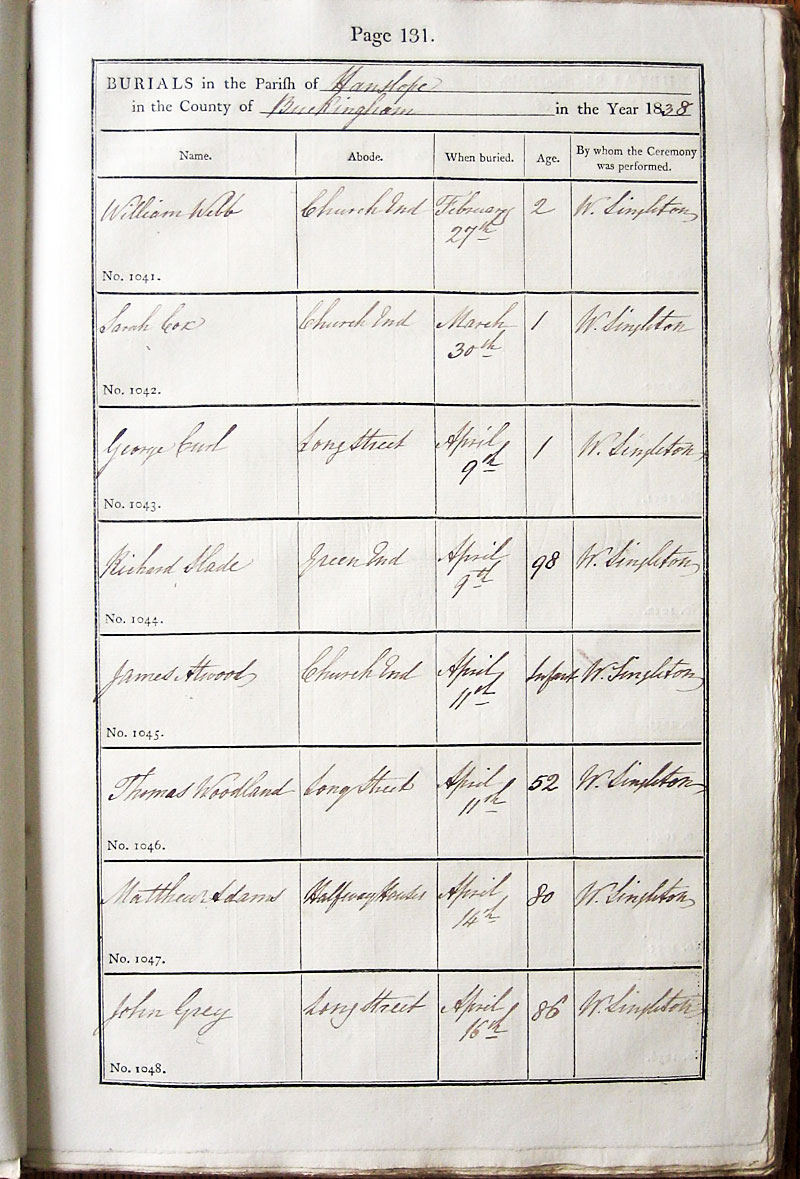 Page 131.
BURIALS in the Parish of Hanslope
in the County of Buckingham in the Year 1838
Name. Abode. When buried. Age. By whom the Ceremony was performed.
William Webb Church End February 2 W. Singleton
27th
No. 1041.
Sarah Cox Church End March 1 W. Singleton
30th
No. 1042.
George Curl Long Street April 1 W. Singleton
9th
No. 1043.
Richard Slade Green End April 98 W. Singleton
9th
No. 1044.
James Atwood Church End April Infant W. Singleton
11th
No. 1045.
Thomas Woodland Long Street April 52 W. Singleton
11th
No. 1046.
Matthew Adams Halfway Houses April 80 W. Singleton
14th
No. 1047.
John Grey Long Street April 86 W. Singleton
16th
No. 1048.